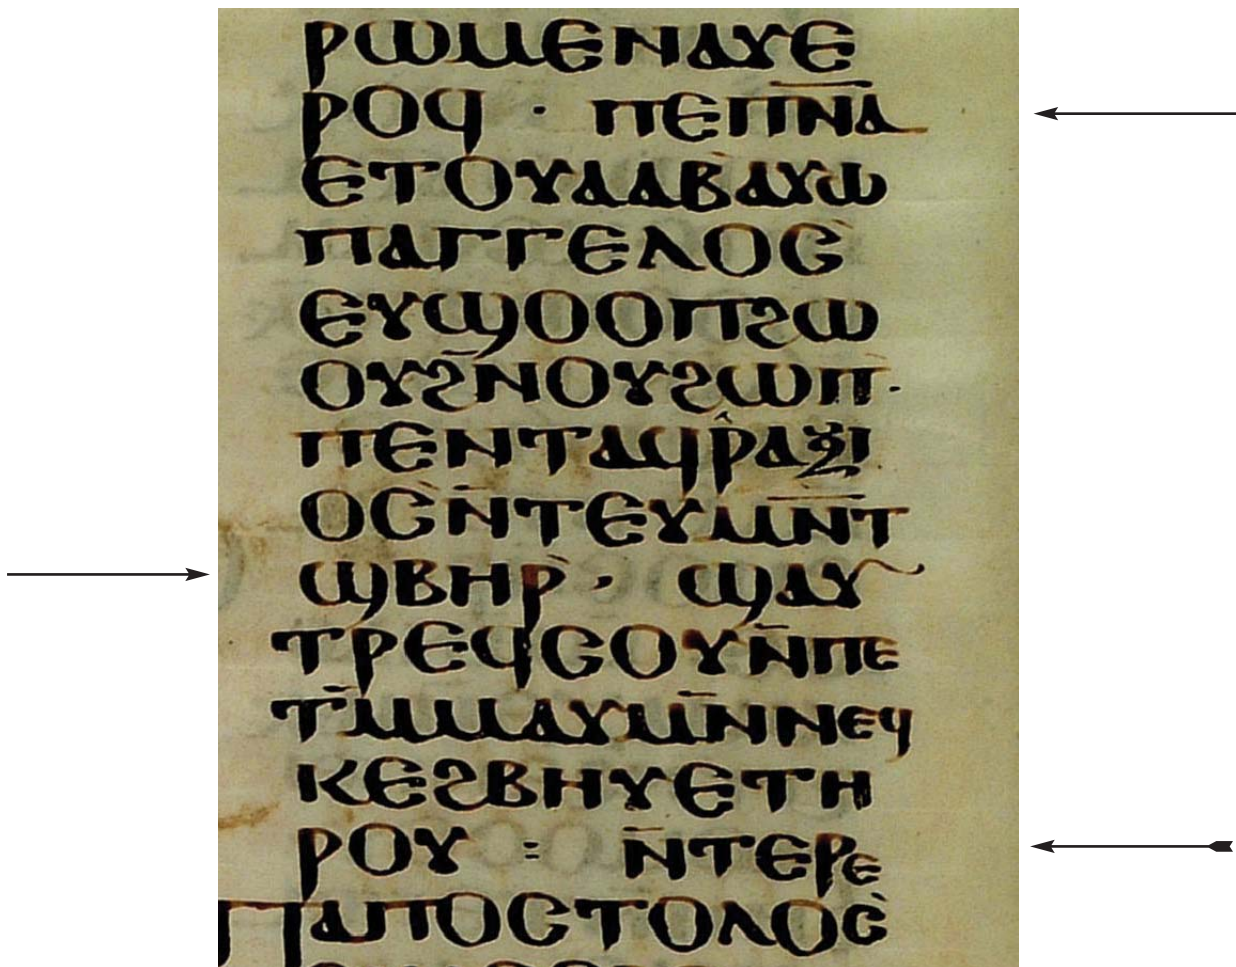 ⲣⲱⲙⲉⲛⲁⲩⲉ
ⲣⲟϥ · ⲡⲉⲡ̅ⲛ̅ⲁ̅
ⲉⲧⲟⲩⲁⲁⲃⲁⲩⲱ
ⲡⲁⲅⲅⲉⲗⲟⲥ
ⲉⲩϣⲟⲟⲡϩⲱ
ⲟⲩϩⲛ̅ⲟⲩϩⲱⲡ·
ⲡⲉⲛⲧⲁϥⲣ̂ⲁⲝⲓ
ⲟⲥⲛ̅ⲧⲉⲩⲙⲛ̅ⲧ
ϣⲃⲏⲣ · ϣⲁⲩ
ⲧⲣⲉϥⲥⲟⲩⲛ̅ⲡⲉ
ⲧⲙ̅ⲙⲁⲩⲙⲛ̅ⲛⲉϥ
ⲕⲉϩⲃⲏⲩⲉⲧⲏ
ⲣⲟⲩ : ⲛ̅ⲧⲉⲣⲉ
ⲡⲁⲡⲟⲥⲧⲟⲗⲟⲥ